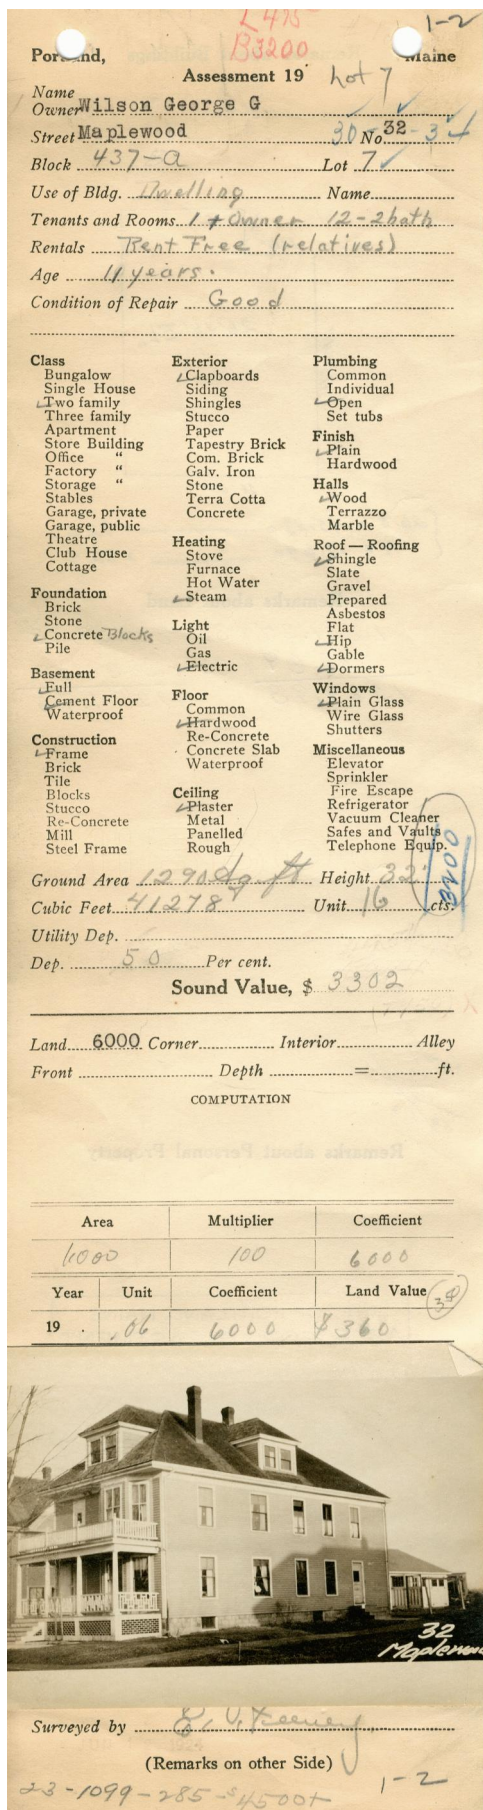 L 475
B3200
1-2
Portland, Maine
Assessment 19 Lot 7
Name
Owner Wilson George G
Street Maplewood 30 - No 32 - 34
Block 437-A Lot 7
Use of Bldg. Dwelling Name
Tenants and Rooms 1 + Owner 12-2 bath
Rentals Rent Free (relatives)
Age 11 years.
Condition of Repair Good
Class
Bungalow
Single House
✓Two family
Three family
Apartment
Store Building
Office "
Factory "
Storage "
Stables
Garage, private
Garage, public
Theatre
Club House
Cottage
Foundation
Brick
Stone
✓Concrete Blocks
Pile
Basement
✓Full
✓Cement Floor
Waterproof
Construction
✓Frame
Brick
Tile
Blocks
Stucco
Re-Concrete
Mill
Steel Frame
Exterior
✓Clapboards
Siding
Shingles
Stucco
Paper
Tapestry Brick
Com. Brick
Galv. Iron
Stone
Terra Cotta
Concrete
Heating
Stove
Furnace
Hot Water
✓Steam
Light
Oil
Gas
✓Electric
Floor
Common
✓Hardwood
Re-Concrete
Concrete Slab
Waterproof
Ceiling
✓Plaster
Metal
Panelled
Rough
Plumbing
Common
Individual
✓Open
Set tubs
Finish
✓Plain
Hardwood
Halls
✓Wood
Terrazzo
Marble
Roof — Roofing
✓Shingle
Slate
Gravel
Prepared
Asbestos
Flat
✓Hip
Gable
✓Dormers
Windows
✓Plain Glass
Wire Glass
Shutters
Miscellaneous
Elevator
Sprinkler
Fire Escape
Refrigerator
Vacuum Cleaner
Safes and Vaults
Telephone Equip.
3200
Ground Area 1290 Sq ft Height 32'
Cubic Feet 41278 Unit 16 cts.
Utility Dep.
Dep. 50 Per cent.
Sound Value, $ 3302
Land 6000 Corner Interior Alley
Front Depth = ft.
COMPUTATION
Area Multiplier Coefficient
6000 100 6000
Year Unit Coefficient Land Value
19 . .06 6000 $360
32
Maplewood
Surveyed by
(Remarks on other Side)
23-1099-285-$4500+
1-2